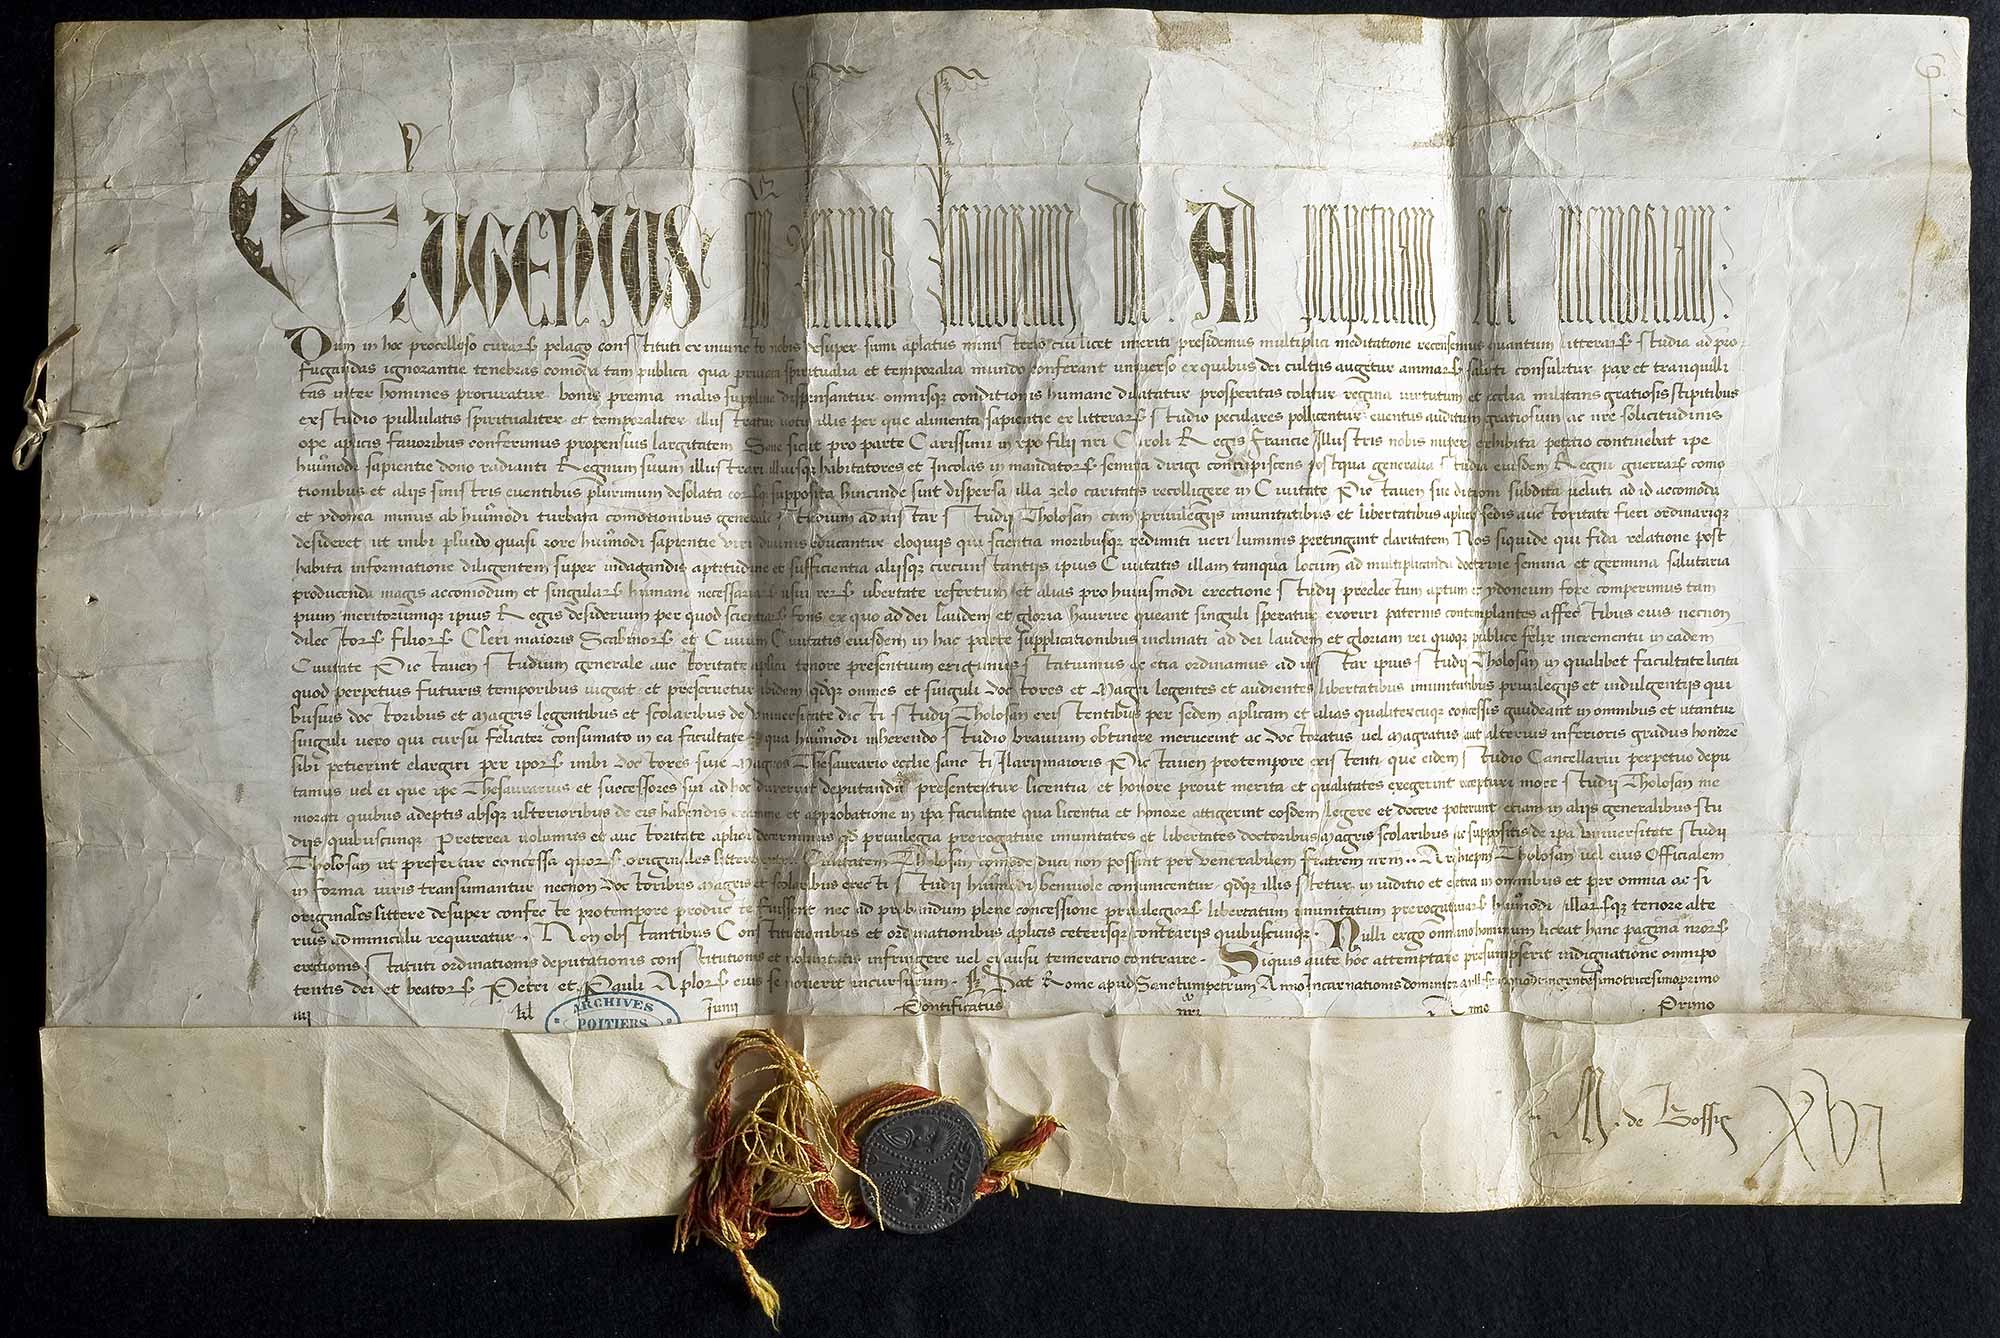 6
Eugenius ep̄s servus servorum dei Ad perpetuam rei memoriam:
Dum in hoc procelloso curarꝝ pelago constituti ex iniuncto nobis desuper sumi aplatus ministerio cui licet imeriti presidemus multiplici meditatione recensemus quantum litterarꝝ studia ad pro
fugandas ignorantie tenebras comoda tam publica qua privata spiritualia et temporalia mundo conferant universo ex quibus dei cultus augetur animarꝝ saluti consulitur par et tranquilli
tas inter homines procuratur bonis premia malis supplicia dispensantur omnisqꝫ conditionis humane dilatatur prosperitas colitur regina virtutum et ecclia militans gratiosis stipitibus
ex studio pullulatis spiritualiter et temporaliter illustratur votis illis per que alimenta sapientie ex litterarꝝ studio peculiares pollicentur eventus auditum gratiosum ac nre solicitudinis
ope aplicis favoribus conferimus propensius largitatem Sane sicut pro parte Carissimi in xpo filii nri Caroli Regis Francie Illustris nobis nuper exhibita petitio continebat ipe
huiusmōdi sapientie dono radianti Regnum suum illustrari illiusqꝫ habitatores et Incolas in mandatorꝝ semita dirigi concupiscens postqua generalia studia eiusdem Regni guerrarꝝ como
tionibus et aliis sinistris eventibus plurimum desolata eorꝫqꝫ supposita hincinde sint dispersa illa zelo caritatis recolligere in Civitate Pictaven sue ditioni subdita veluti ad id accomoda
et ydonea minus ab huiūmōdi turbata comotionibus generale studium ad instar studii Tholosan cum privilegiis imunitatibus et libertatibus aplice sedis auctoritate fieri ordinariqꝫ
desideret ut inibi pluvido quasi rore huiūmōdi sapientie viri divinis educantur eloquiis qui scientia moribusqꝫ redimiti veri luminis pertingant claritatem Nos siquidē qui fida relatione post
habita informatione diligentem super indagandis aptitudine et sufficientia aliisqꝫ circunstantiis ipius Civitatis illam tanqua locum ad multiplicanda doctrine semina et germina salutaria
producenda magis accomodum et singularꝝ humane necessariarꝝ usui rerꝝ ubertate refertum et alias pro huiusmodi erectione studii preelectum aptum et ydoneum fore comperimus tam
pium meritoriumqꝫ ipius Regis desiderium per quod scientiarꝝ fons ex quo ad dei laudem et gloria haurire queant singuli speratur exoriri paternis contemplantes affectibus eius necnon
dilectorꝝ filiorꝝ Cleri maioris Scabinorꝝ et Civium Civitatis eiusdem in hac parte supplicationibus inclinati ad dei laudem et gloriam rei quoqꝫ publice felix incrementū in eadem
Civitate Pictaven studium generale auctoritate aplica tenore presentium erigimus statuimus ac etia ordinamus ad instar ipius studii Tholosan in qualibet facultate licita
quod perpetuis futuris temporibus vigeat et preservetur ibidem qdqꝫ omnes et singuli doctores et Magri legentes et audientes libertatibus imunitatibus privilegiis et indulgentiis qui
busvis doctoribus et Magris legentibus et scolaribus de Universitate dicti studii Tholosan existentibus per sedem aplicam et alias qualitercuqꝫ concessis gaudeant in omnibus et utantur
singuli vero qui cursu feliciter consumato in ea facultate qua huiūmōdi inherendo studio bravium obtinere meruerint ac doctoratus vel magratus aut alterius inferioris gradus honore
sibi petierint elargiri per iporꝝ inibi doctores sive Magros Thesaurario ecclie sancti Ilarii maioris Pictaven pro tempore existenti que eidem studio Cancellariū perpetuo depu
tamus vel ei que ipe Thesaurarius et successores sui ad hoc duxerint deputandū presententur licentia et honore prout merita et qualitates exegerint recepturi more studii Tholosan me
morati quibus adeptis absqꝫ ulterioribus de eis habendis examine et approbatione in ipa facultate qua licentia et honore attigerint eosdem legere et docere poterunt etiam in aliis generalibus stu
diis quibuscunqꝫ Preterea volumus et auctoritate aplica decernimus qd privilegia prerogative imunitates et libertates doctoribus magris scolaribus ac suppositis de ipa Universitate studii
Tholosan ut prefertur concessa quorꝝ originales littere extra Civitatem Tholosan comode duci non possint per venerabilem fratrem nrm .. Archiepm Tholosan vel eius Officialem
in forma iuris transumantur necnon doctoribus magris et scolaribus erecti studii huiūmōdi benivole comunicentur qdqꝫ illis stetur in iuditio et extra in omnibus et pre omnia ac si
originales littere desuper confecte pro tempore producte fuissent nec ad probandum plene concessione privilegiorꝝ libertatum imunitatum prerogativarꝝ huiūmōdi illarꝝqꝫ tenore alte
rius adminiculū requiratur. Non obstantibus Constitutionibus et ordinationibus aplicis ceterisqꝫ contrariis quibuscunqꝫ. Nulli ergo omnino hominum liceat hanc pagina nrorꝝ
erectionis statuti ordinationis deputationis constitutionis et voluntatis infringere vel ei ausu temerario contraire. Siquis aute hoc attemptare presumpserit indignatione omnipo
tentis dei et beatorꝝ Petri et Pauli Aplorꝝ eius se noverit incursurum. Dat Rome apud Sanctum petrum Anno Incarnationis dominice millesimo quadringentesimotricesimoprimo
iiij kl Junii Pontificatus nri Anno Primo
ARCHIVES
POITIERS
M. de Bossis XVI